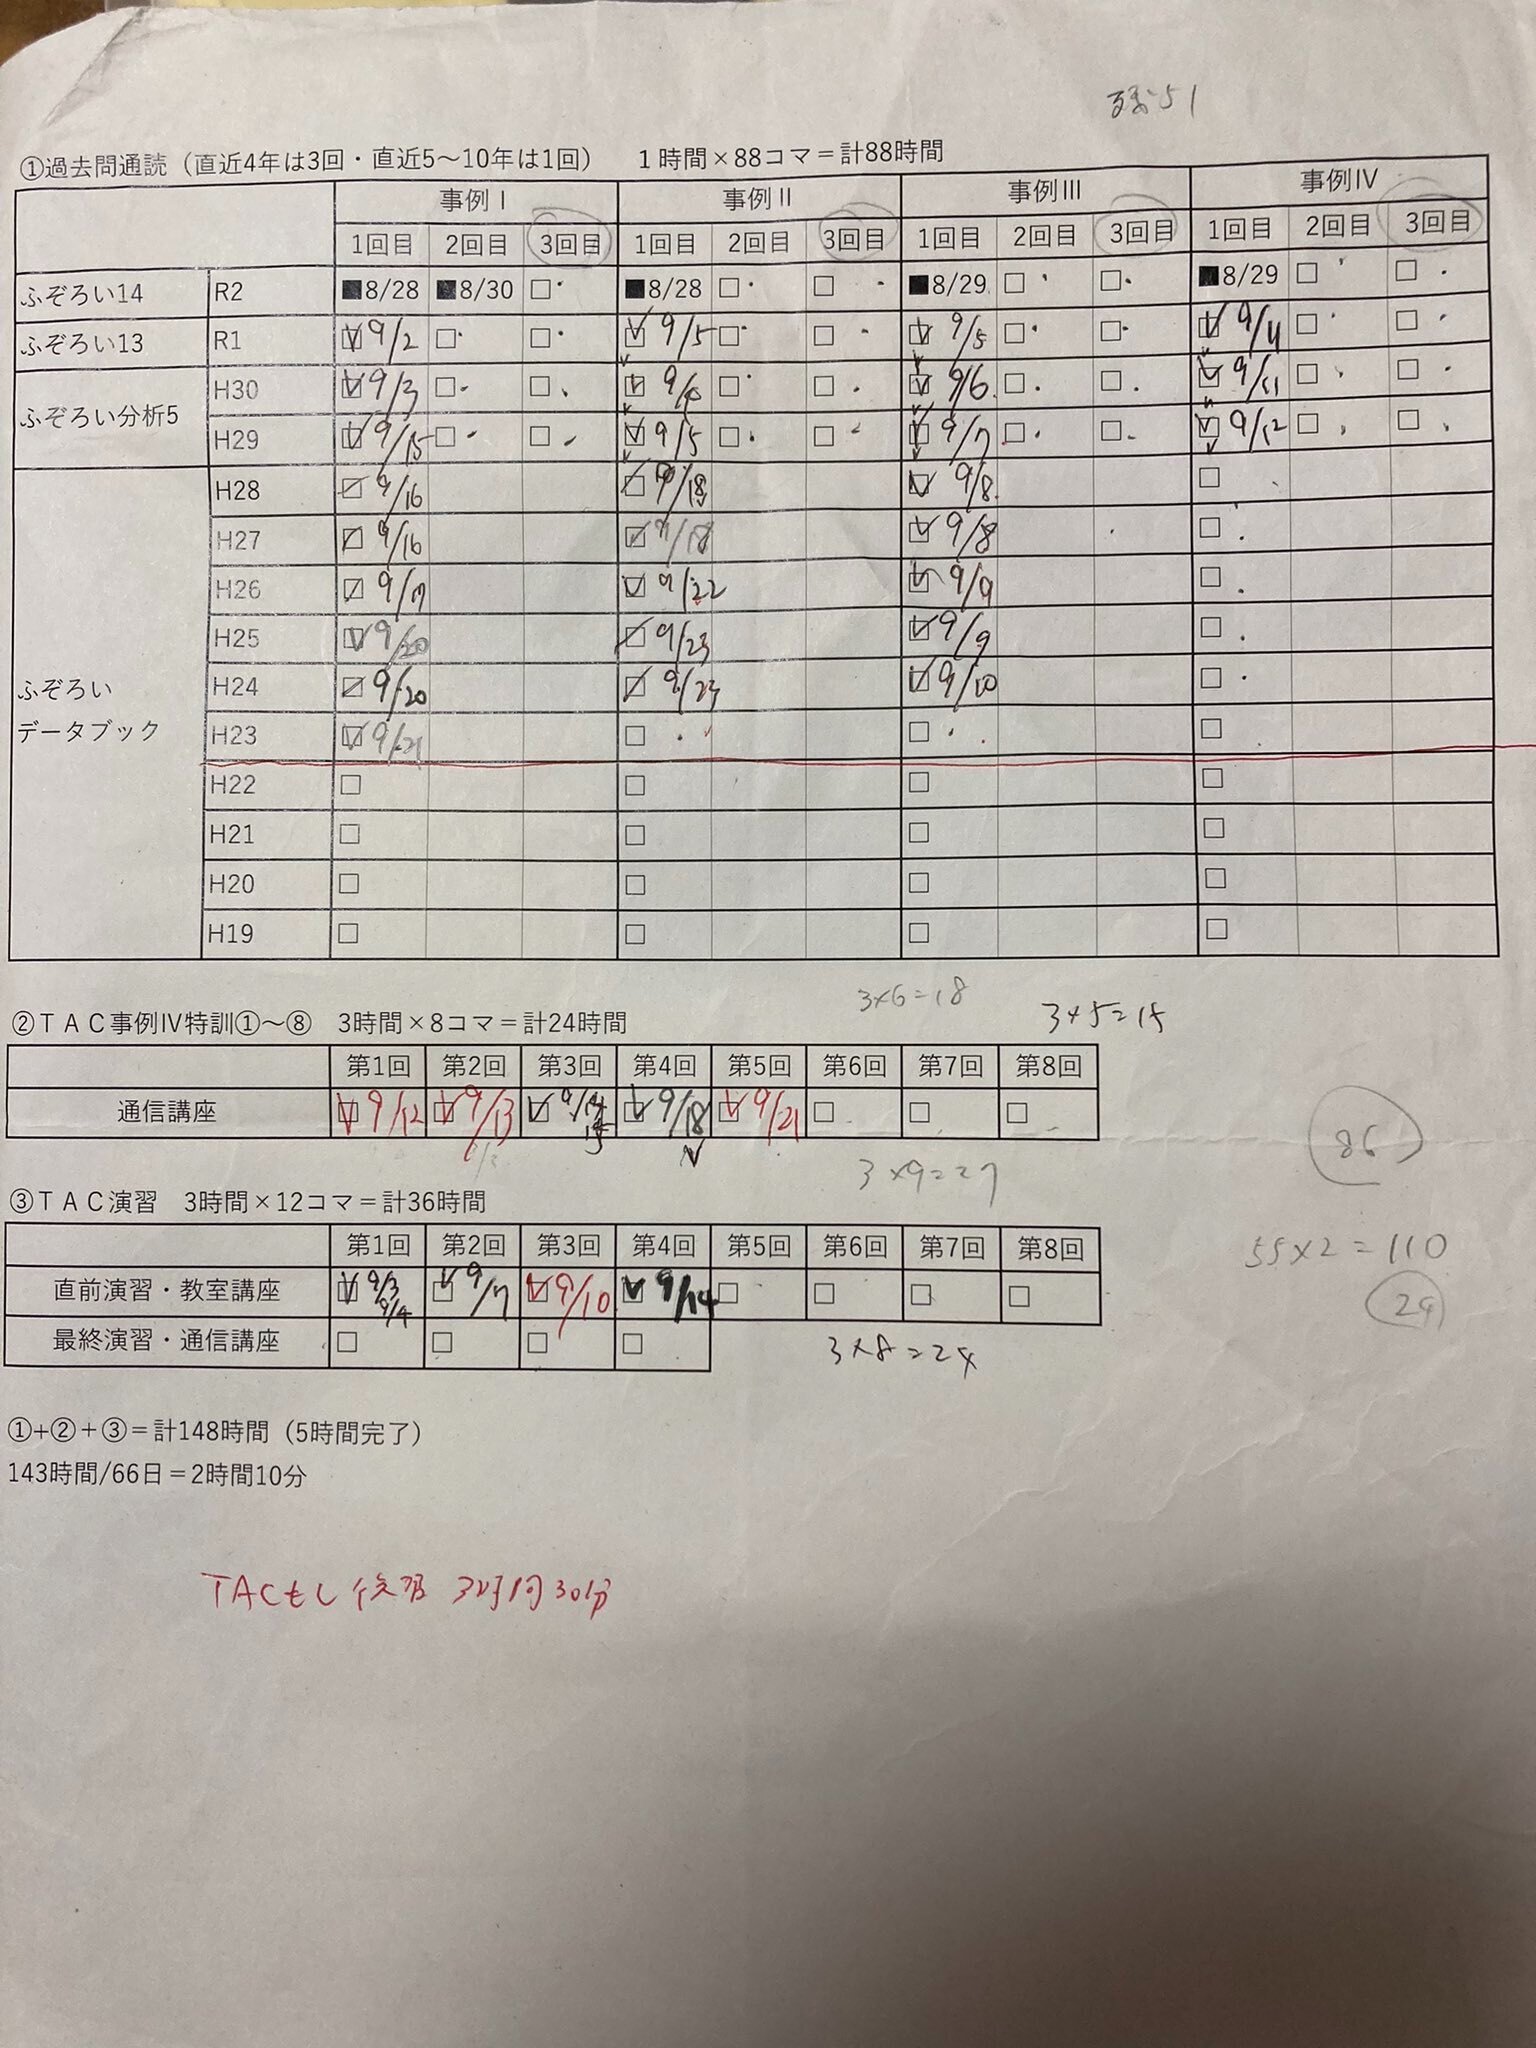 残51
①過去問通読（直近4年は3回・直近5～10年は1回）　1時間×88コマ＝計88時間
事例Ⅰ 事例Ⅱ 事例Ⅲ 事例Ⅳ
1回目 2回目 3回目 1回目 2回目 3回目 1回目 2回目 3回目 1回目 2回目 3回目
ふぞろい14 R2 ■8/28 ■8/30 □ ■8/28 □ □ ■8/29 □ □ ■8/29 □ □
ふぞろい13 R1 ☑9/2 □ □ ☑9/5 □ □ ☑9/5 □ □ ☑9/4 □ □
ふぞろい分析5
H30 ☑9/3 □ □ ☑ □ □ ☑9/6 □ □ ☑9/11 □ □
H29 ☑9/15 □ □ ☑9/5 □ □ ☑9/7 □ □ ☑9/12 □ □
ふぞろい
データブック
H28 ☑9/16 ☑ ☑9/8 □
H27 ☑9/16 ☑9/18 ☑9/8 □
H26 ☑9/17 ☑9/22 ☑9/9 □
H25 ☑9/20 ☑9/23 ☑9/9 □
H24 ☑9/20 ☑9/23 ☑9/10 □
H23 ☑9/21 □ □ □
H22 □ □ □ □
H21 □ □ □ □
H20 □ □ □ □
H19 □ □ □ □
3×6=18
3×5=15
②ＴＡＣ事例Ⅳ特訓①～⑧　3時間×8コマ＝計24時間
第1回 第2回 第3回 第4回 第5回 第6回 第7回 第8回
通信講座 ☑9/12 ☑9/13 ☑9/14 15 ☑9/18 ☑9/21 □ □ □
86
3×9=27
③ＴＡＣ演習　3時間×12コマ＝計36時間
第1回 第2回 第3回 第4回 第5回 第6回 第7回 第8回
55×2=110
直前演習・教室講座 ☑9/3 9/4 ☑9/7 ☑9/10 ☑9/14 □ □ □ □
24
最終演習・通信講座 □ □ □ □
3×8=24
①+②＋③＝計148時間（5時間完了）
143時間/66日＝2時間10分
TACもし復習 30分